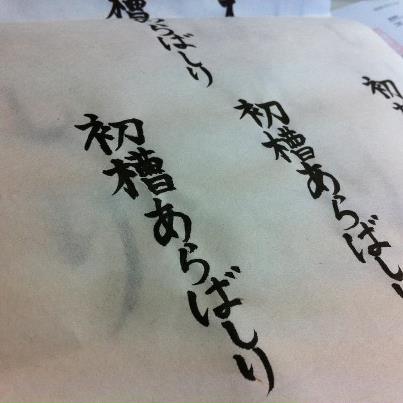 初槽あらばしり
初槽あらばしり
槽あらばしり
初